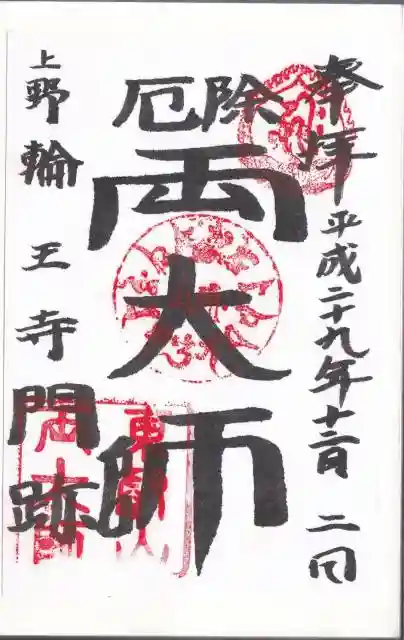 奉拝
平成二十九年十二月二日
厄除
両大師
上野輪王寺門跡